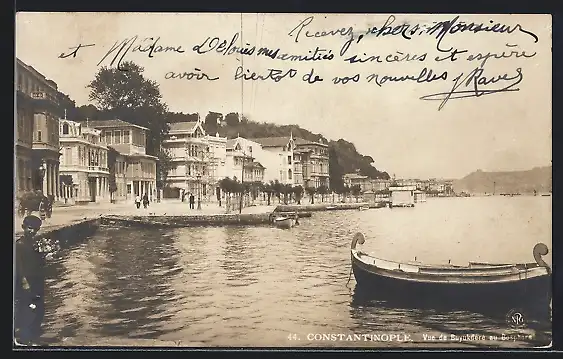 Recevez, chers Monsieur
et Madame Delouis mes amitiés sincères et espère
avoir bientot de vos nouvelles
44. CONSTANTINOPLE. Vue de Buyukdéré au Bosphore